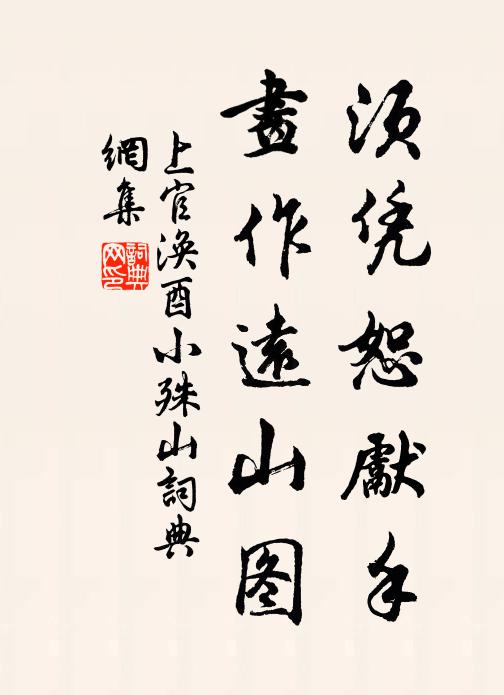 须凭恕獻手
畫作遠山图
上官涣酉小殊山詞典
網集
詞典网印